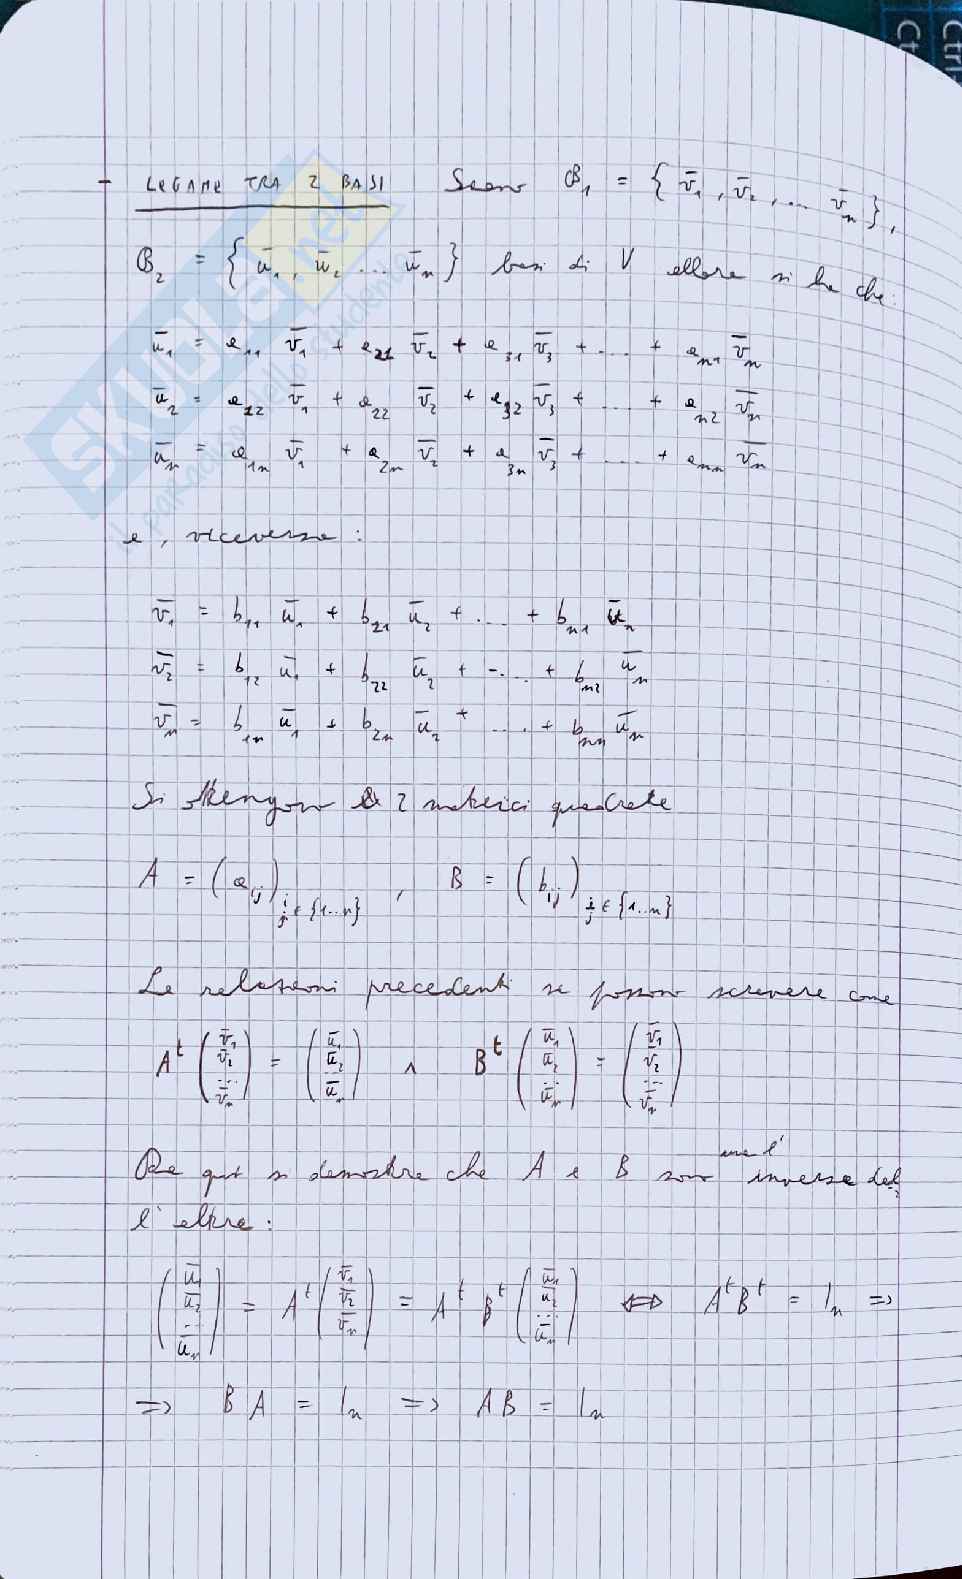 - LEGAME TRA 2 BASI Siano B₁ = { v̄₁ , v̄₂ , ... v̄ₙ } ,
B₂ = { ū₁ , ū₂ ... ūₙ } basi di V allora si ha che:
ū₁ = a₁₁ v̄₁ + a₂₁ v̄₂ + a₃₁ v̄₃ + .... + aₙ₁ v̄ₙ
ū₂ = a₁₂ v̄₁ + a₂₂ v̄₂ + a₃₂ v̄₃ + .... + aₙ₂ v̄ₙ
ūₙ = a₁ₙ v̄₁ + a₂ₙ v̄₂ + a₃ₙ v̄₃ + .... + aₙₙ v̄ₙ
e , viceversa :
v̄₁ = b₁₁ ū₁ + b₂₁ ū₂ + .... + bₙ₁ ūₙ
v̄₂ = b₁₂ ū₁ + b₂₂ ū₂ + .... + bₙ₂ ūₙ
v̄ₙ = b₁ₙ ū₁ + b₂ₙ ū₂ + .... + bₙₙ ūₙ
Si ottengono 2 matrici quadrate
A = (aᵢⱼ) i j ∈ {1...n} , B = (bᵢⱼ) i j ∈ {1...n}
Le relazioni precedenti si possono scrivere come
Aᵗ (v̄₁ v̄₂ ... v̄ₙ) = (ū₁ ū₂ ... ūₙ) ∧ Bᵗ (ū₁ ū₂ ... ūₙ) = (v̄₁ v̄₂ ... v̄ₙ)
Da qui si dimostra che A e B sono una l' inversa del
l' altra :
(ū₁ ū₂ ... ūₙ) = Aᵗ (v̄₁ v̄₂ v̄ₙ) = Aᵗ Bᵗ (ū₁ ū₂ ... ūₙ) ⇔ AᵗBᵗ = Iₙ ⇒
⇒ B A = Iₙ ⇒ A B = Iₙ
SKUOLA.net
il paradiso dello studente
Ctrl
Ct